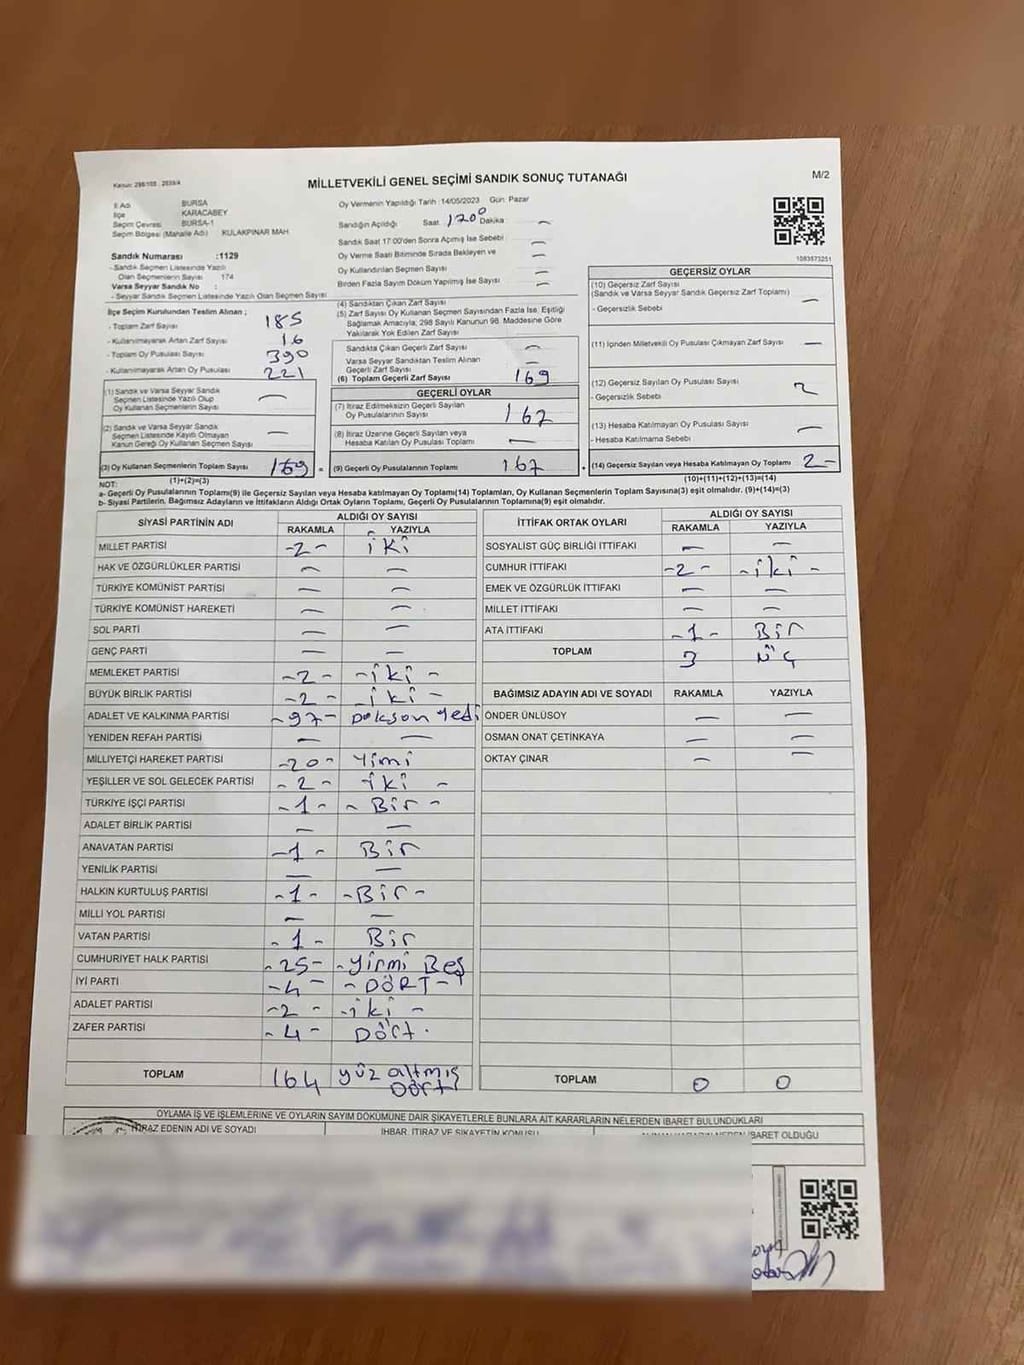 Kanun: 298/105 , 2839/4
MİLLETVEKİLİ GENEL SEÇİMİ SANDIK SONUÇ TUTANAĞI
M/2
İl Adı BURSA
İlçe KARACABEY
Seçim Çevresi BURSA-1
Seçim Bölgesi (Mahalle Adı) KULAKPINAR MAH
Sandık Numarası :1129
- Sandık Seçmen Listesinde Yazılı
Olan Seçmenlerin Sayısı 174
Varsa Seyyar Sandık No :
- Seyyar Sandık Seçmen Listesinde Yazılı Olan Seçmen Sayısı
İlçe Seçim Kurulundan Teslim Alınan ;
- Toplam Zarf Sayısı 185
- Kullanılmayarak Artan Zarf Sayısı 16
- Toplam Oy Pusulası Sayısı 390
- Kullanılmayarak Artan Oy Pusulası 221
(1) Sandık ve Varsa Seyyar Sandık
Seçmen Listesinde Yazılı Olup
Oy Kullanan Seçmenlerin Sayısı —
(2) Sandık ve Varsa Seyyar Sandık
Seçmen Listesinde Kayıtlı Olmayan
Kanun Gereği Oy Kullanan Seçmen Sayısı —
(3) Oy Kullanan Seçmenlerin Toplam Sayısı 169
(1)+(2)=(3)
Oy Vermenin Yapıldığı Tarih :14/05/2023 Gün: Pazar
Sandığın Açıldığı Saat 1700 Dakika —
Sandık Saat 17:00'den Sonra Açımış İse Sebebi —
Oy Verme Saati Bitiminde Sırada Bekleyen ve —
Oy Kullandırılan Seçmen Sayısı —
Birden Fazla Sayım Döküm Yapılmış İse Sayısı —
(4) Sandıktan Çıkan Zarf Sayısı
(5) Zarf Sayısı Oy Kullanan Seçmen Sayısından Fazla İse, Eşitliği
Sağlamak Amacıyla, 298 Sayılı Kanunun 98. Maddesine Göre
Yakılarak Yok Edilen Zarf Sayısı
Sandıkta Çıkan Geçerli Zarf Sayısı —
Varsa Seyyar Sandıktan Teslim Alınan
Geçerli Zarf Sayısı —
(6) Toplam Geçerli Zarf Sayısı 169
GEÇERLİ OYLAR
(7) İtiraz Edilmeksizin Geçerli Sayılan
Oy Pusulalarının Sayısı 167
(8) İtiraz Üzerine Geçerli Sayılan veya
Hesaba Katılan Oy Pusulası Toplamı —
(9) Geçerli Oy Pusulalarının Toplamı 167
1083573251
GEÇERSİZ OYLAR
(10) Geçersiz Zarf Sayısı
(Sandık ve Varsa Seyyar Sandık Geçersiz Zarf Toplamı) —
- Geçersizlik Sebebi
(11) İçinden Milletvekili Oy Pusulası Çıkmayan Zarf Sayısı —
(12) Geçersiz Sayılan Oy Pusulası Sayısı 2
- Geçersizlik Sebebi
(13) Hesaba Katılmayan Oy Pusulası Sayısı —
- Hesaba Katılmama Sebebi
(14) Geçersiz Sayılan veya Hesaba Katılmayan Oy Toplamı 2-
(10)+(11)+(12)+(13)=(14)
NOT:
a- Geçerli Oy Pusulalarının Toplamı(9) ile Geçersiz Sayılan veya Hesaba katılmayan Oy Toplamı(14) Toplamları, Oy Kullanan Seçmenlerin Toplam Sayısına(3) eşit olmalıdır. (9)+(14)=(3)
b- Siyasi Partilerin, Bağımsız Adayların ve İttifakların Aldığı Ortak Oyların Toplamı, Geçerli Oy Pusulalarının Toplamına(9) eşit olmalıdır.
SİYASİ PARTİNİN ADI ALDIĞI OY SAYISI
RAKAMLA YAZIYLA
MİLLET PARTİSİ -2- iki
HAK VE ÖZGÜRLÜKLER PARTİSİ — —
TÜRKİYE KOMÜNİST PARTİSİ — —
TÜRKİYE KOMÜNİST HAREKETİ — —
SOL PARTİ — —
GENÇ PARTİ — —
MEMLEKET PARTİSİ -2- -iki-
BÜYÜK BİRLİK PARTİSİ -2- -iki-
ADALET VE KALKINMA PARTİSİ -97- Dokson Yedi
YENİDEN REFAH PARTİSİ — —
MİLLİYETÇİ HAREKET PARTİSİ -20- Yimi
YEŞİLLER VE SOL GELECEK PARTİSİ -2- iki -
TÜRKİYE İŞÇİ PARTİSİ -1- - Bir -
ADALET BİRLİK PARTİSİ — —
ANAVATAN PARTİSİ -1- Bir
YENİLİK PARTİSİ — —
HALKIN KURTULUŞ PARTİSİ -1- -Bir-
MİLLİ YOL PARTİSİ — —
VATAN PARTİSİ -1- Bir
CUMHURİYET HALK PARTİSİ -25- -Yirmi Beş
İYİ PARTİ -4- -DÖRT-
ADALET PARTİSİ -2- -iki -
ZAFER PARTİSİ -4- Dört.
TOPLAM 164 yüz altmış
Dört
İTTİFAK ORTAK OYLARI ALDIĞI OY SAYISI
RAKAMLA YAZIYLA
SOSYALİST GÜÇ BİRLİĞİ İTTİFAKI — —
CUMHUR İTTİFAKI -2- -iki-
EMEK VE ÖZGÜRLÜK İTTİFAKI — —
MİLLET İTTİFAKI — —
ATA İTTİFAKI -1- Bir
TOPLAM 3 üç
BAĞIMSIZ ADAYIN ADI VE SOYADI RAKAMLA YAZIYLA
ÖNDER ÜNLÜSOY — —
OSMAN ONAT ÇETİNKAYA — —
OKTAY ÇINAR — —
TOPLAM 0 0
OYLAMA İŞ VE İŞLEMLERİNE VE OYLARIN SAYIM DÖKÜMÜNE DAİR ŞİKAYETLERLE BUNLARA AİT KARARLARIN NELERDEN İBARET BULUNDUKLARI
İTİRAZ EDENİN ADI VE SOYADI İHBAR, İTİRAZ VE ŞİKAYETİN KONUSU İBARET OLDUĞU